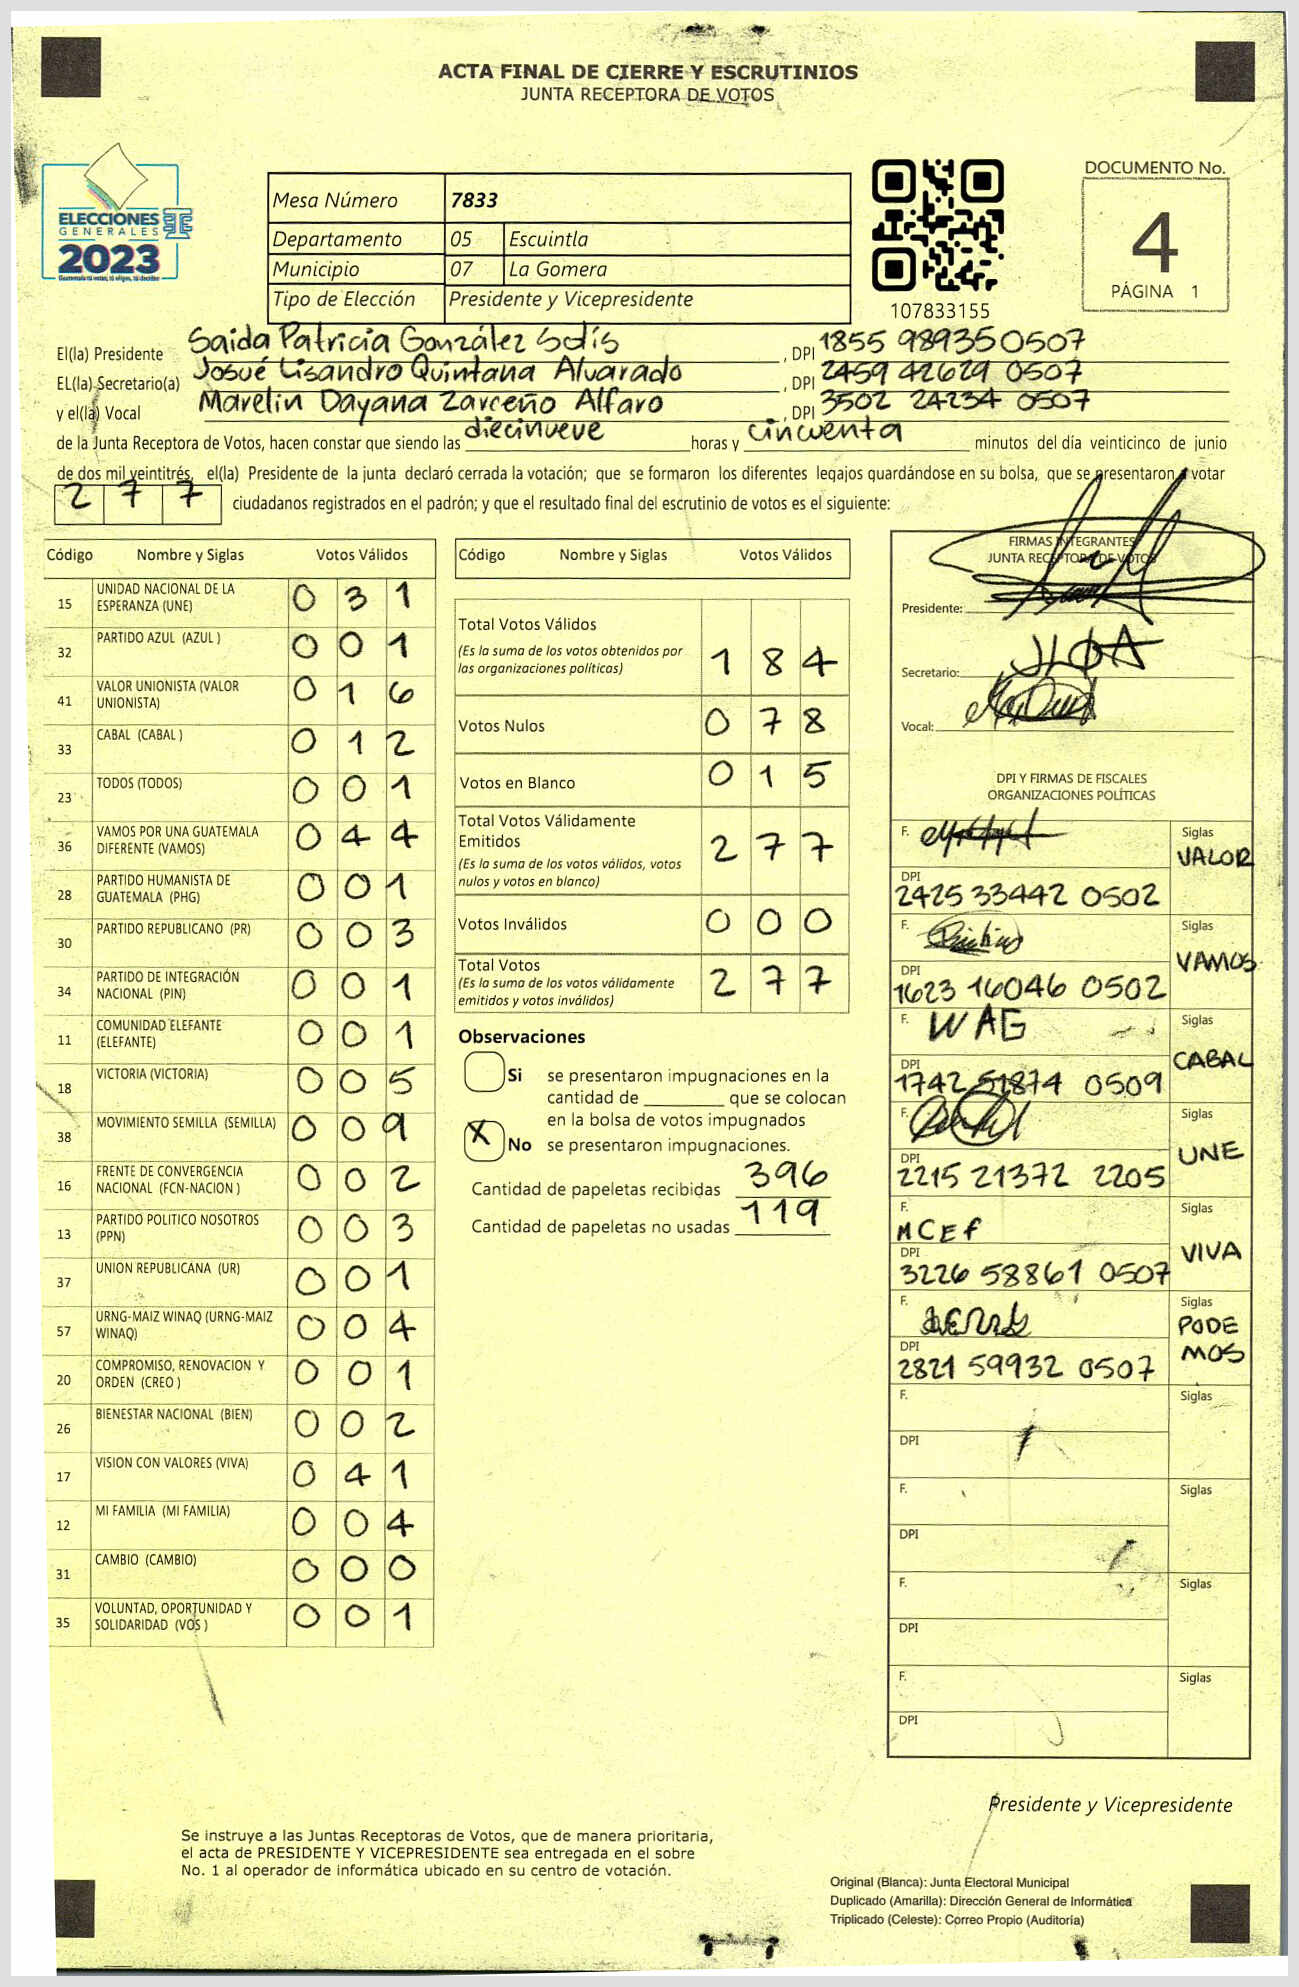 ACTA FINAL DE CIERRE Y ESCRUTINIOS
JUNTA RECEPTORA DE VOTOS
ELECCIONES
GENERALES
2023
Mesa Número 7833
Departamento 05 Escuintla
Municipio 07 La Gomera
Tipo de Elección Presidente y Vicepresidente
107833155
DOCUMENTO No.
4
PÁGINA 1
El(la) Presidente Saida Patricia González Solís, DPI 1855 98935 0507
EL(la) Secretario(a) Josué Lisandro Quintana Alvarado, DPI 2459 42629 0507
y el(la) Vocal Marelin Dayana Zarceño Alfaro, DPI 3502 24234 0507
de la Junta Receptora de Votos, hacen constar que siendo las diecinueve horas y cincuenta minutos del día veinticinco de junio
de dos mil veintitrés, el(la) Presidente de la junta declaró cerrada la votación; que se formaron los diferentes legajos guardándose en su bolsa, que se presentaron a votar
277 ciudadanos registrados en el padrón; y que el resultado final del escrutinio de votos es el siguiente:
Código Nombre y Siglas Votos Válidos
15 UNIDAD NACIONAL DE LA ESPERANZA (UNE) 0 3 1
32 PARTIDO AZUL (AZUL ) 0 0 1
41 VALOR UNIONISTA (VALOR UNIONISTA) 0 1 6
33 CABAL (CABAL ) 0 1 2
23 TODOS (TODOS) 0 0 1
36 VAMOS POR UNA GUATEMALA DIFERENTE (VAMOS) 0 4 4
28 PARTIDO HUMANISTA DE GUATEMALA (PHG) 0 0 1
30 PARTIDO REPUBLICANO (PR) 0 0 3
34 PARTIDO DE INTEGRACIÓN NACIONAL (PIN) 0 0 1
11 COMUNIDAD ELEFANTE (ELEFANTE) 0 0 1
18 VICTORIA (VICTORIA) 0 0 5
38 MOVIMIENTO SEMILLA (SEMILLA) 0 0 9
16 FRENTE DE CONVERGENCIA NACIONAL (FCN-NACION ) 0 0 2
13 PARTIDO POLITICO NOSOTROS (PPN) 0 0 3
37 UNION REPUBLICANA (UR) 0 0 1
57 URNG-MAIZ WINAQ (URNG-MAIZ WINAQ) 0 0 4
20 COMPROMISO, RENOVACION Y ORDEN (CREO ) 0 0 1
26 BIENESTAR NACIONAL (BIEN) 0 0 2
17 VISION CON VALORES (VIVA) 0 4 1
12 MI FAMILIA (MI FAMILIA) 0 0 4
31 CAMBIO (CAMBIO) 0 0 0
35 VOLUNTAD, OPORTUNIDAD Y SOLIDARIDAD (VOS ) 0 0 1
Código Nombre y Siglas Votos Válidos
Total Votos Válidos
(Es la suma de los votos obtenidos por
las organizaciones políticas) 1 8 4
Votos Nulos 0 7 8
Votos en Blanco 0 1 5
Total Votos Válidamente
Emitidos
(Es la suma de los votos válidos, votos
nulos y votos en blanco) 2 7 7
Votos Inválidos 0 0 0
Total Votos
(Es la suma de los votos válidamente
emitidos y votos inválidos) 2 7 7
Observaciones
Si se presentaron impugnaciones en la
cantidad de ________ que se colocan
en la bolsa de votos impugnados
X No se presentaron impugnaciones.
Cantidad de papeletas recibidas 396
Cantidad de papeletas no usadas 119
FIRMAS INTEGRANTES
JUNTA RECEPTORA DE VOTOS
Presidente:
Secretario: JLQA
Vocal:
DPI Y FIRMAS DE FISCALES
ORGANIZACIONES POLÍTICAS
F. Siglas VALOR
DPI 2425 33442 0502
F. Siglas VAMOS
DPI 1623 16046 0502
F. WAG Siglas CABAL
DPI 1742 51874 0509
F. Siglas UNE
DPI 2215 21372 2205
F. MCEF Siglas VIVA
DPI 3226 58861 0507
F. Siglas PODE
MOS
DPI 2821 59932 0507
F. Siglas
DPI
F. Siglas
DPI
F. Siglas
DPI
F. Siglas
DPI
Presidente y Vicepresidente
Se instruye a las Juntas Receptoras de Votos, que de manera prioritaria,
el acta de PRESIDENTE Y VICEPRESIDENTE sea entregada en el sobre
No. 1 al operador de informática ubicado en su centro de votación.
Original (Blanca): Junta Electoral Municipal
Duplicado (Amarilla): Dirección General de Informática
Triplicado (Celeste): Correo Propio (Auditoría)